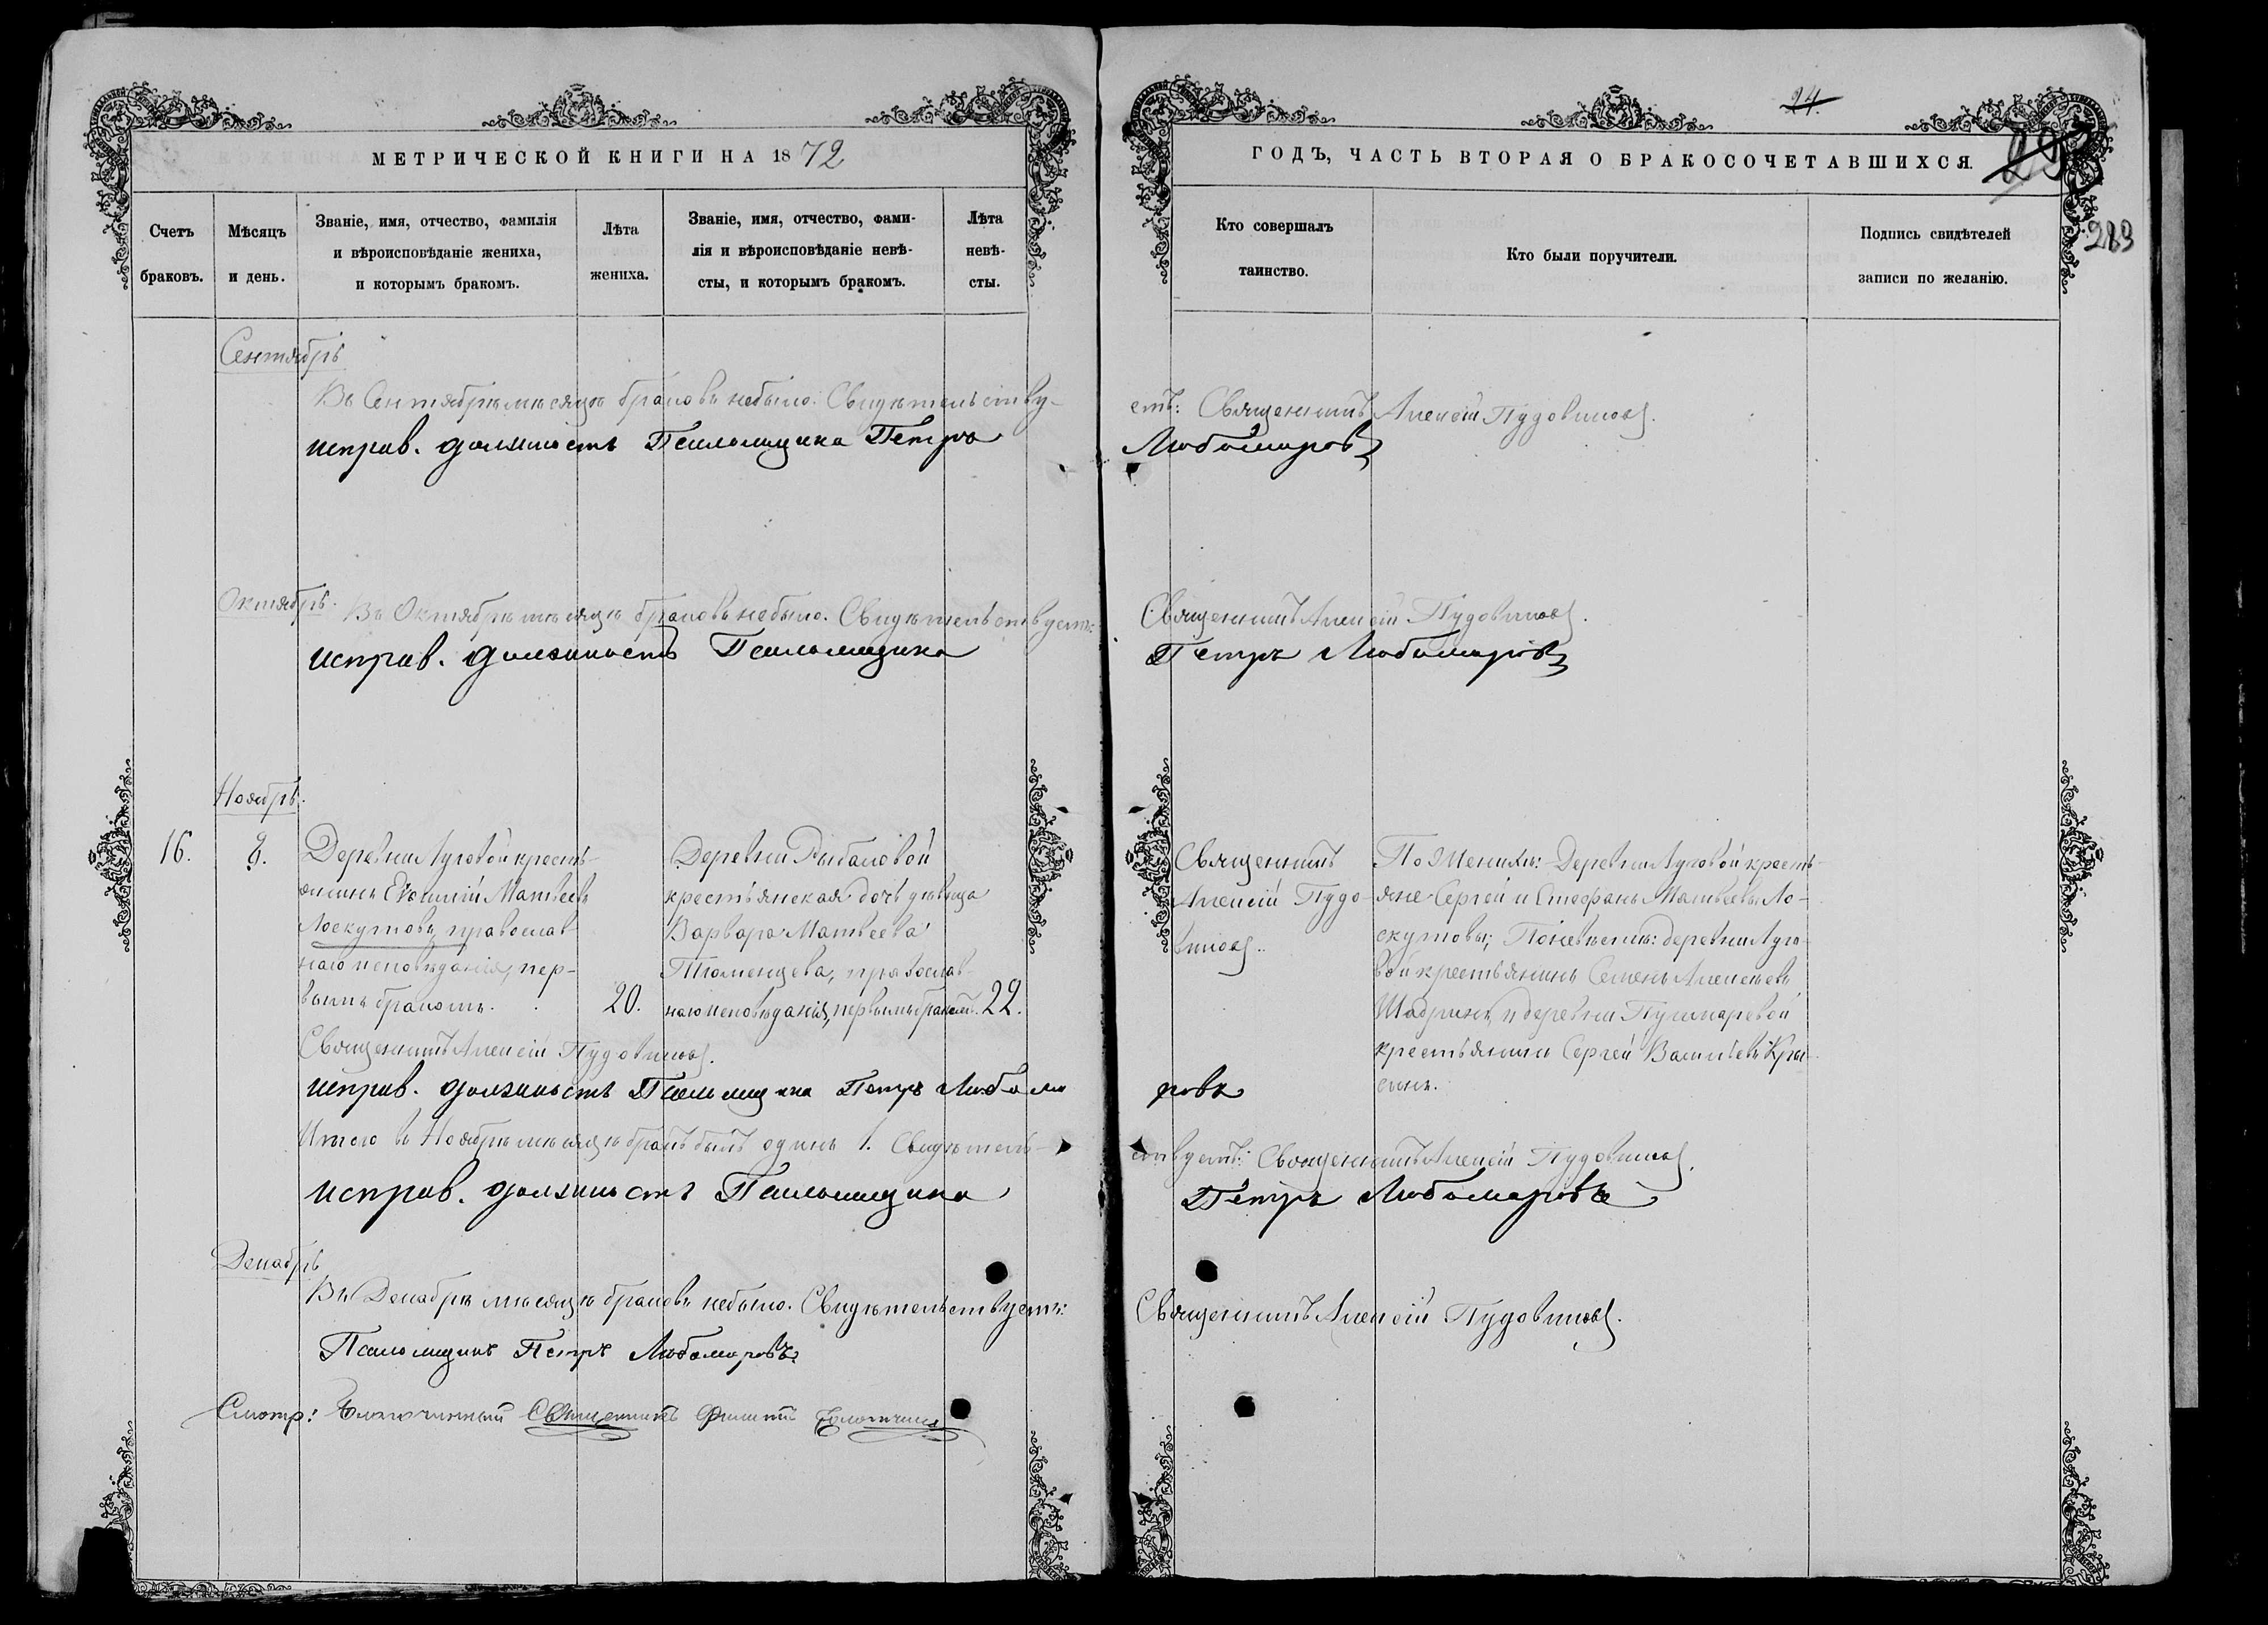 24.
29
МЕТРИЧЕСКОЙ КНИГИ НА 1872
ГОДЪ, ЧАСТЬ ВТОРАЯ О БРАКОСОЧЕТАВШИХСЯ.
283
Счетъ
браковъ.
Мѣсяцъ
и день.
Званіе, имя, отчество, фамилія
и вѣроисповѣданіе жениха,
и которымъ бракомъ.
Лѣта
жениха.
Званіе, имя, отчество, фами-
лія и вѣроисповѣданіе невѣ-
сты, и которымъ бракомъ.
Лѣта
невѣ-
сты.
Кто совершалъ
таинство.
Кто были поручители.
Подпись свидѣтелей
записи по желанію.
Сентябрь
Въ Сентябрѣ мѣсяцѣ браковъ небыло. Свидѣтельству-
етъ: Священникъ Алексій Пудовиковъ.
исправ. должность Псаломщика Петръ
Любомировъ
Октябрь.
Въ Октябрѣ мѣсяцѣ браковъ небыло. Свидѣтельствуетъ:
Священникъ Алексій Пудовиковъ.
исправ. должность Псаломщика
Петръ Любомировъ
Ноябрь.
16.
8.
Деревни Луговой кресть-
янинъ Матвеевъ
Лоскутовъ, православ-
наго исповѣданія, пер-
вымъ бракомъ.
20.
Деревни Рыбаловой
крестьянская дочь дѣвица
Варвара Матвеева
Тюменцева, православ-
наго исповѣданія, первымъ бракомъ.
22.
Священникъ
Алексій Пудо-
виковъ.
По Женихѣ: Деревни Луговой кресть-
яне Сергей и Стефанъ Матвеевы Ло-
скутовы; По невѣстѣ: деревни Луго-
вой крестьянинъ Семенъ Алексѣевъ
Шадринъ, и деревни
крестьянинъ Сергей Васильевъ
Священникъ Алексій Пудовиковъ.
исправ. должность Псаломщика Петръ Любоми
ровъ
Итого въ Ноябрѣ мѣсяцѣ бракъ былъ одинъ 1. Свидѣтель-
ствуетъ: Священникъ Алексій Пудовиковъ.
исправ. должность Псаломщика
Петръ Любомировъ
Декабрь
Въ Декабрѣ мѣсяцѣ браковъ небыло. Свидѣтельствуетъ:
Священникъ Алексій Пудовиковъ.
Псаломщикъ Петръ Любомировъ
Смотр: Благочинный Священникъ